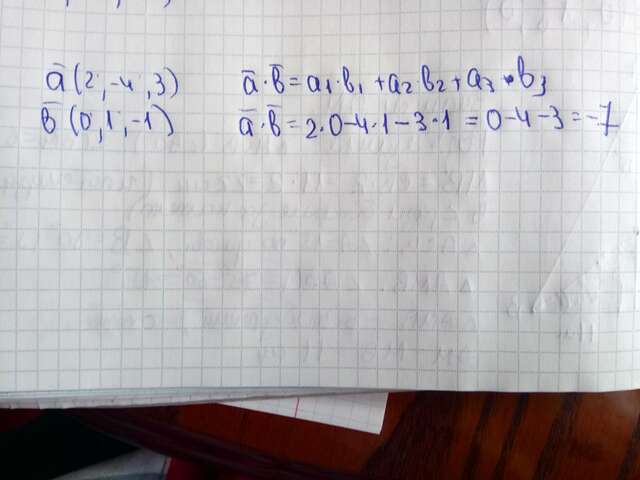 a̅(2, -4, 3) a̅·b̅=a₁·b₁+a₂·b₂+a₃·b₃
b̅(0, 1, -1) a̅·b̅=2·0-4·1-3·1=0-4-3=-7